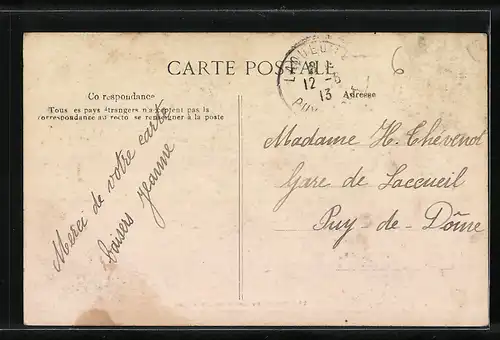 CARTE POSTALE
LAQUEUILLE
12 -5
13
PUY
Correspondance
Adresse
Tous les pays étrangers n'acceptent pas la
correspondance au recto se renseigner à la poste
Merci de votre carte
Baisers Jeanne
Madame H. Thévenot
Gare de Laccueil
Puy-de-Dôme
6